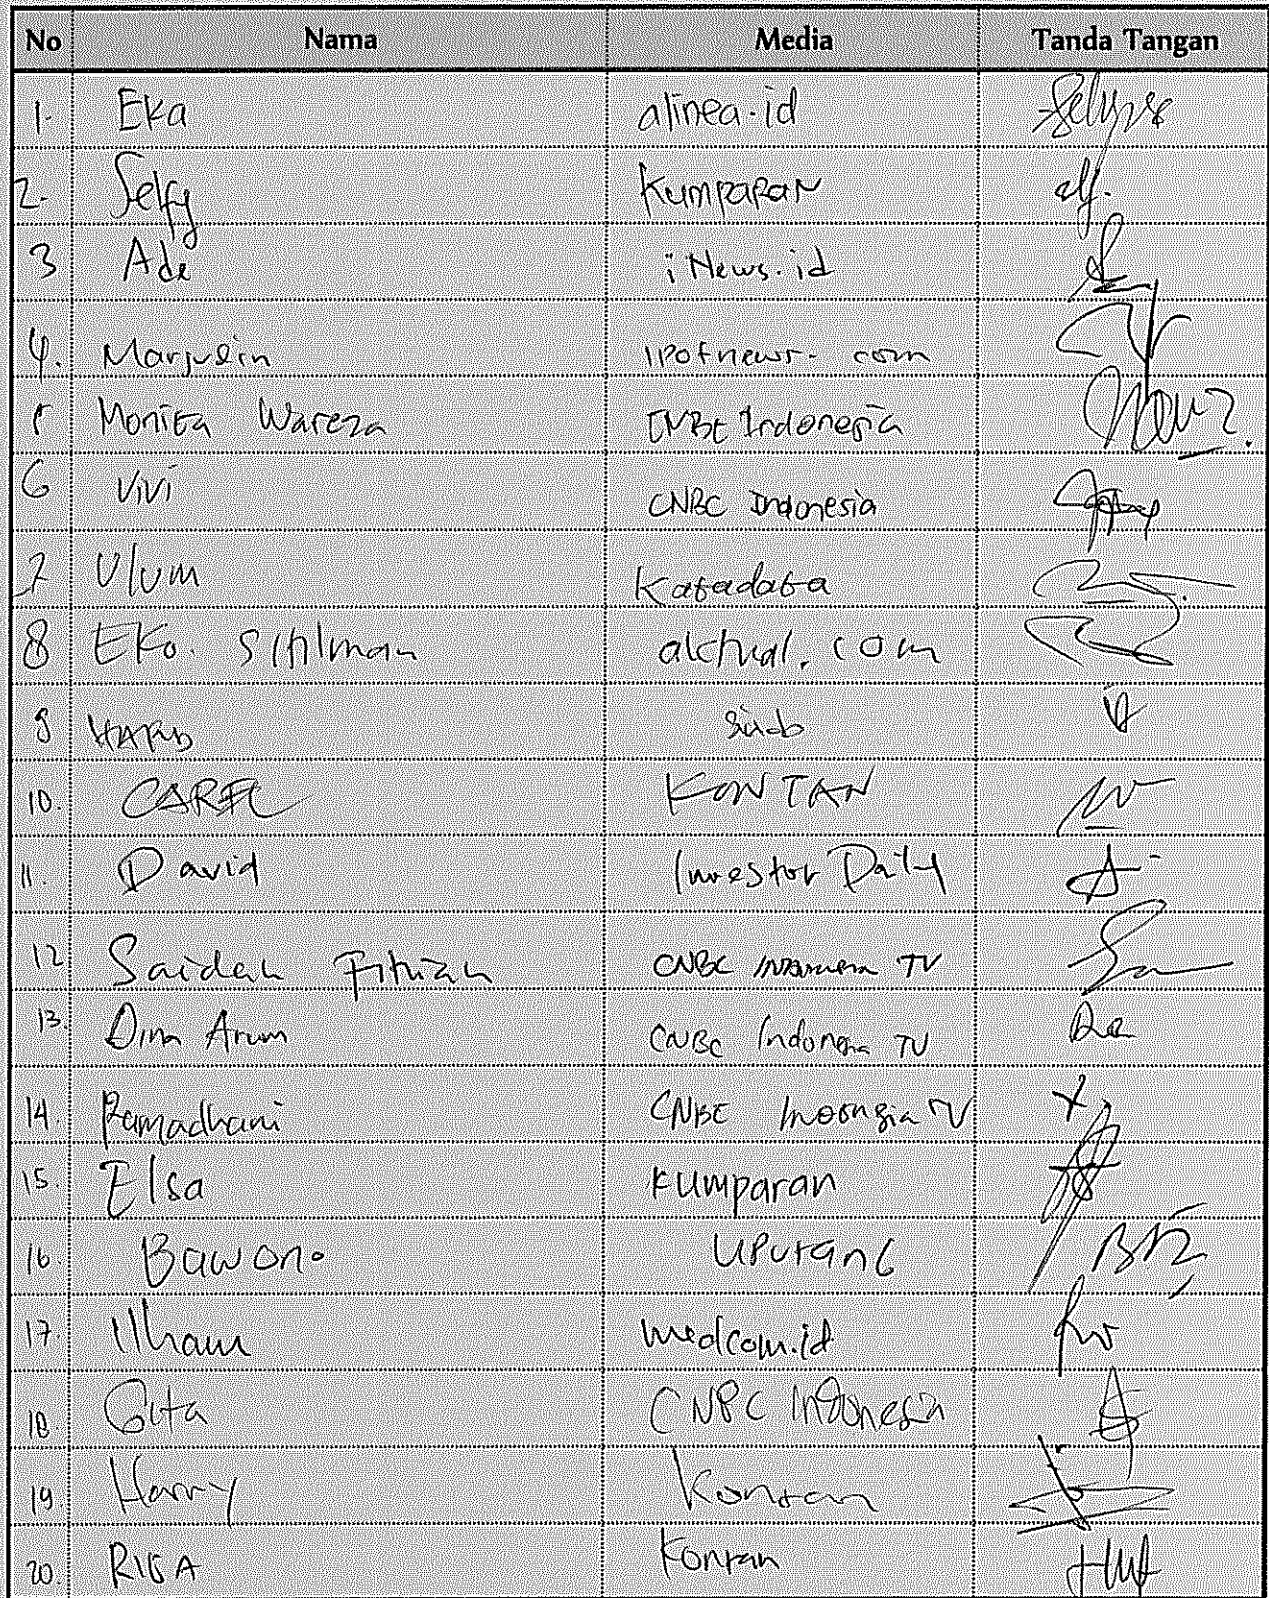 No Nama Media Tanda Tangan
1. Eka alinea.id
2. Selfy Kumparan
3 Ade iNews.id
4. com
5 Monica Wareza CNBC Indonesia
6 Vivi CNBC Indonesia
7 Ulum Katadata
8 Eko. aktual.com
9
10. CAREL KONTAN
11. David Investor Daily
12 Saidah Fitriah CNBC Indonesia TV
13. Dina Arum CNBC Indonesia TV
14. Ramadhani CNBC Indonesia TV
15. Elsa kumparan
16. Bawono
17. Ilham medcom.id
18 Gita CNBC Indonesia
19. Harry Kontan
20. Kontan